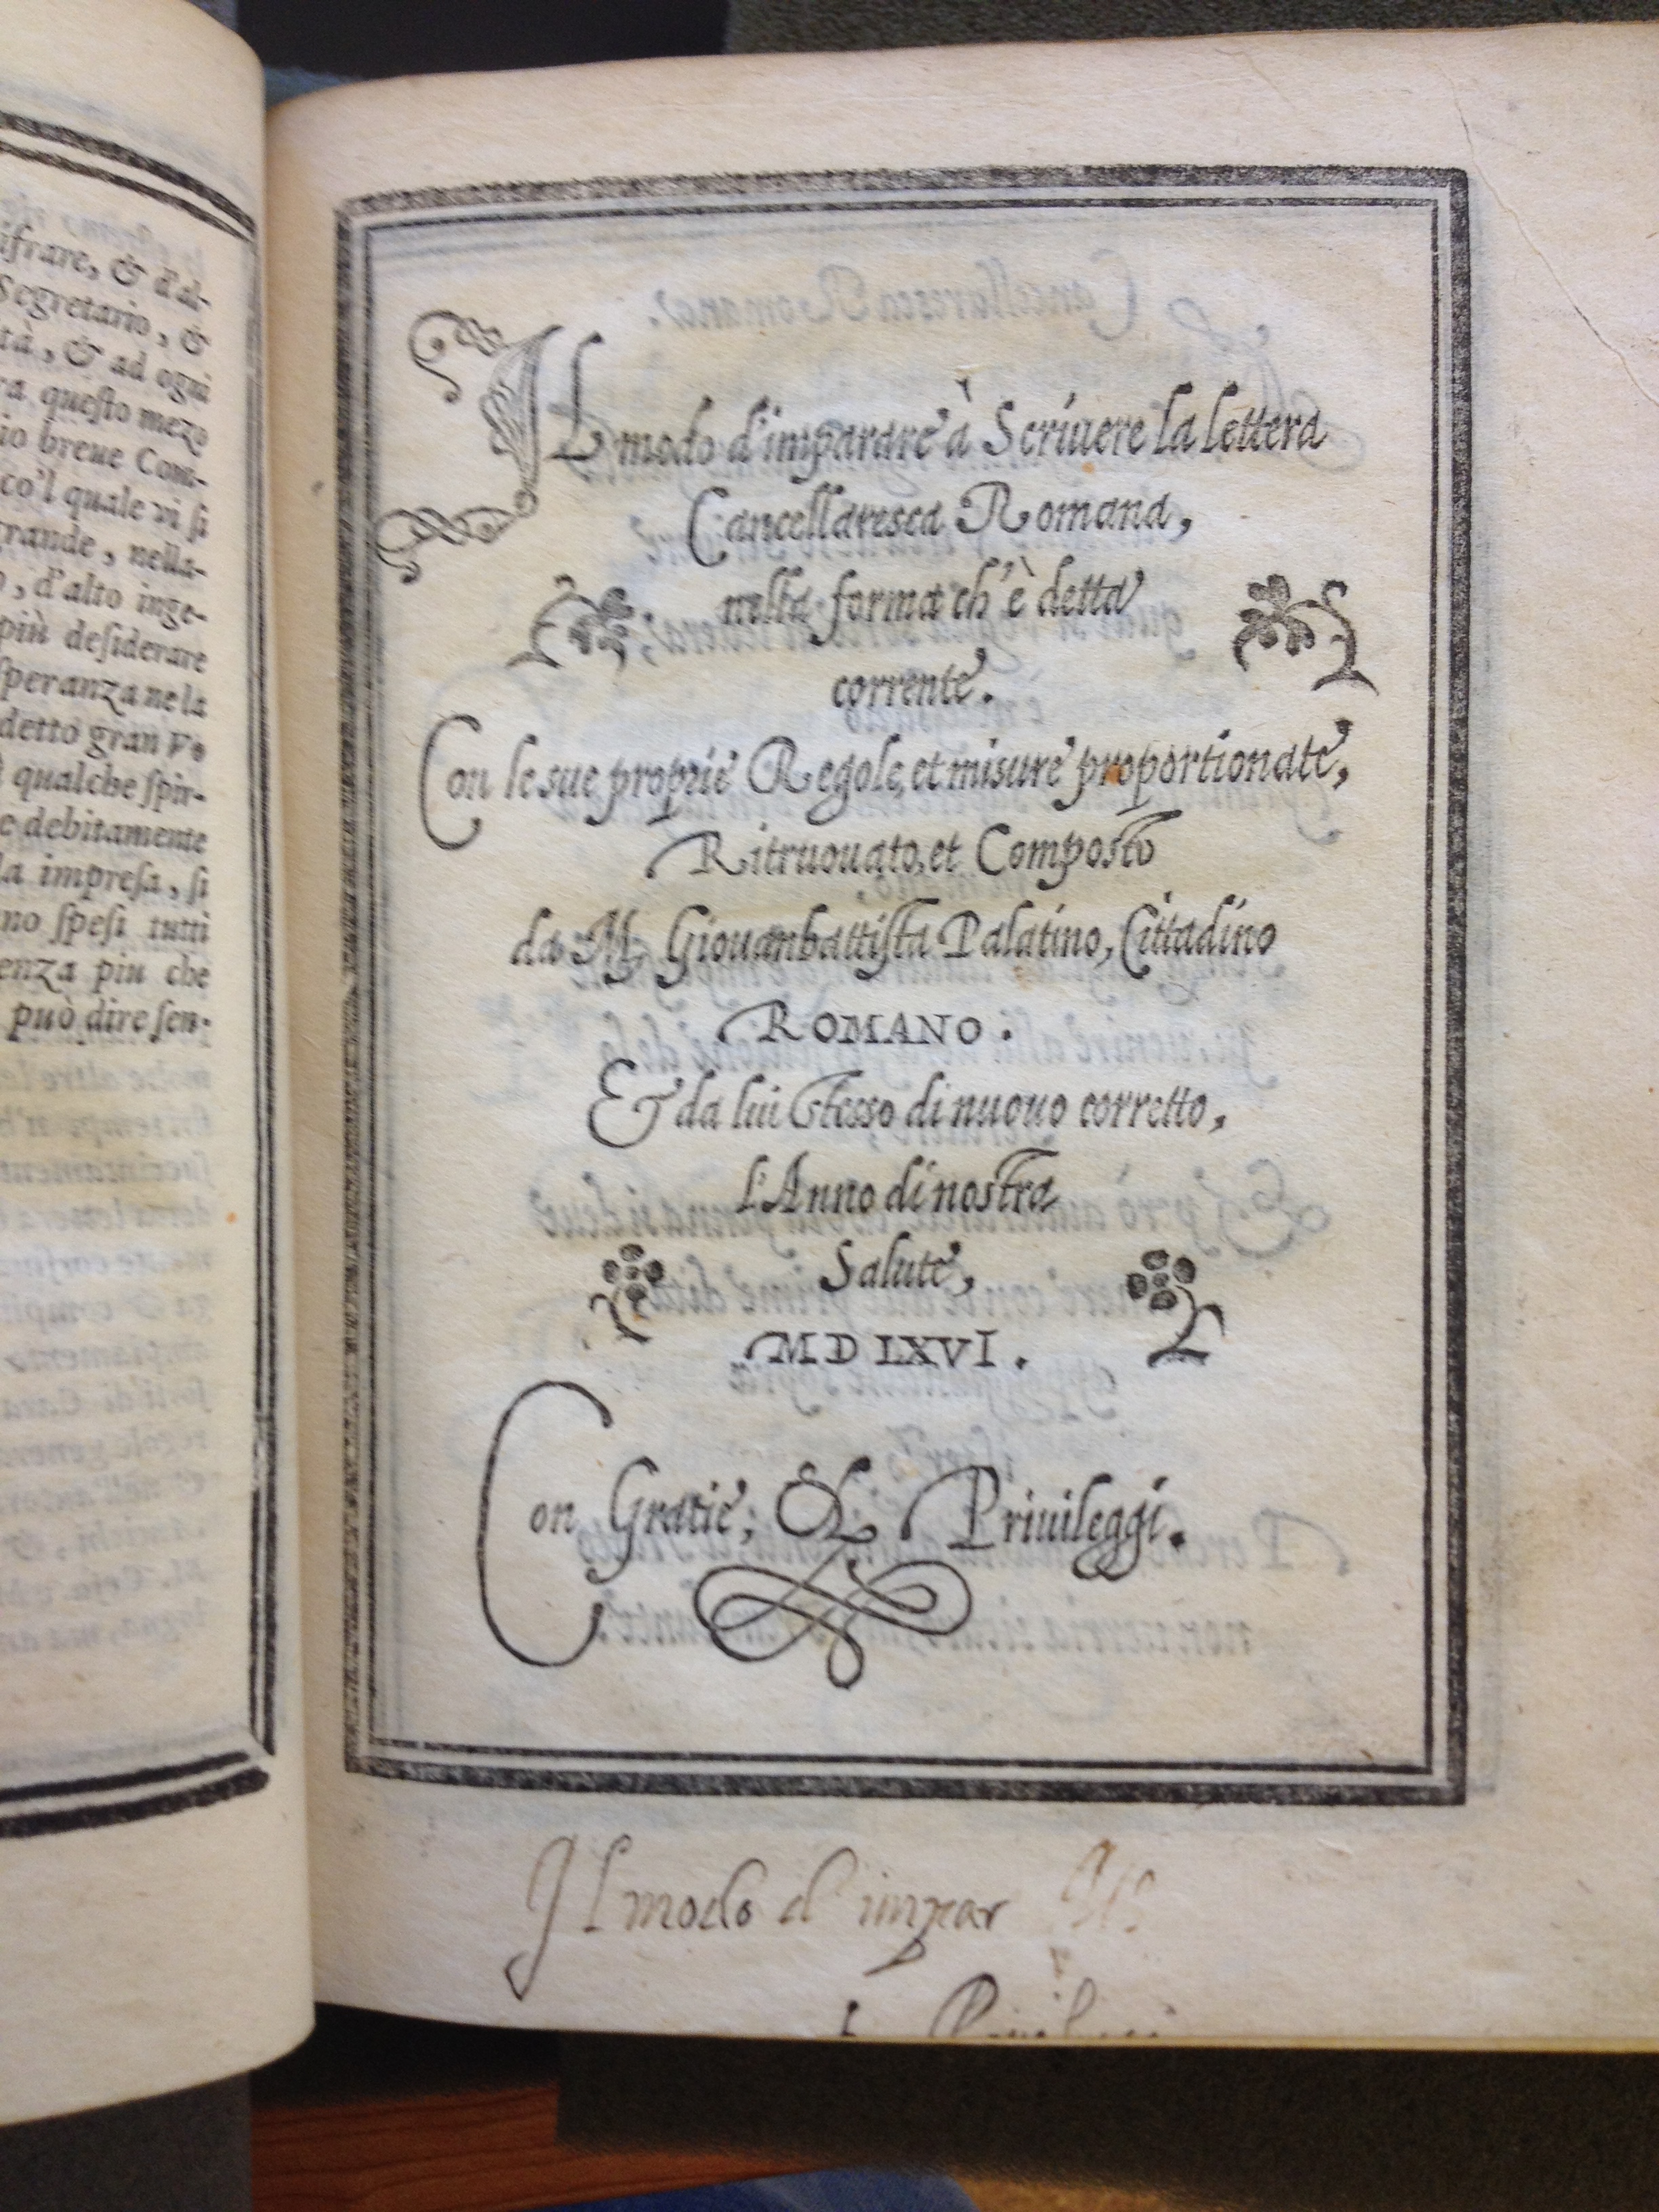 ifrare, & d'al-
Segretario, &
tà, & ad ogni
ra questo mezo
io breue Com-
co'l quale vi si
grande, nella-
o, d'alto inge-
più desiderare
speranza ne la
detto gran Vo
qualche spir-
e debitamente
la impresa, si
no spesi tutti
enza piu che
può dire sen-
IL modo d'imparare à Scriuere la lettera
Cancellaresca Romana,
nella forma ch'è detta
corrente.
Con le sue proprie Regole, et misure proportionate,
Ritruouato, et Composto
da M. Giouanbattista Palatino, Cittadino
ROMANO.
Et da lui stesso di nuouo corretto,
l'Anno di nostra
Salute,
MD LXVI.
Con Gratie, & Priuileggi.
Il modo d'impar